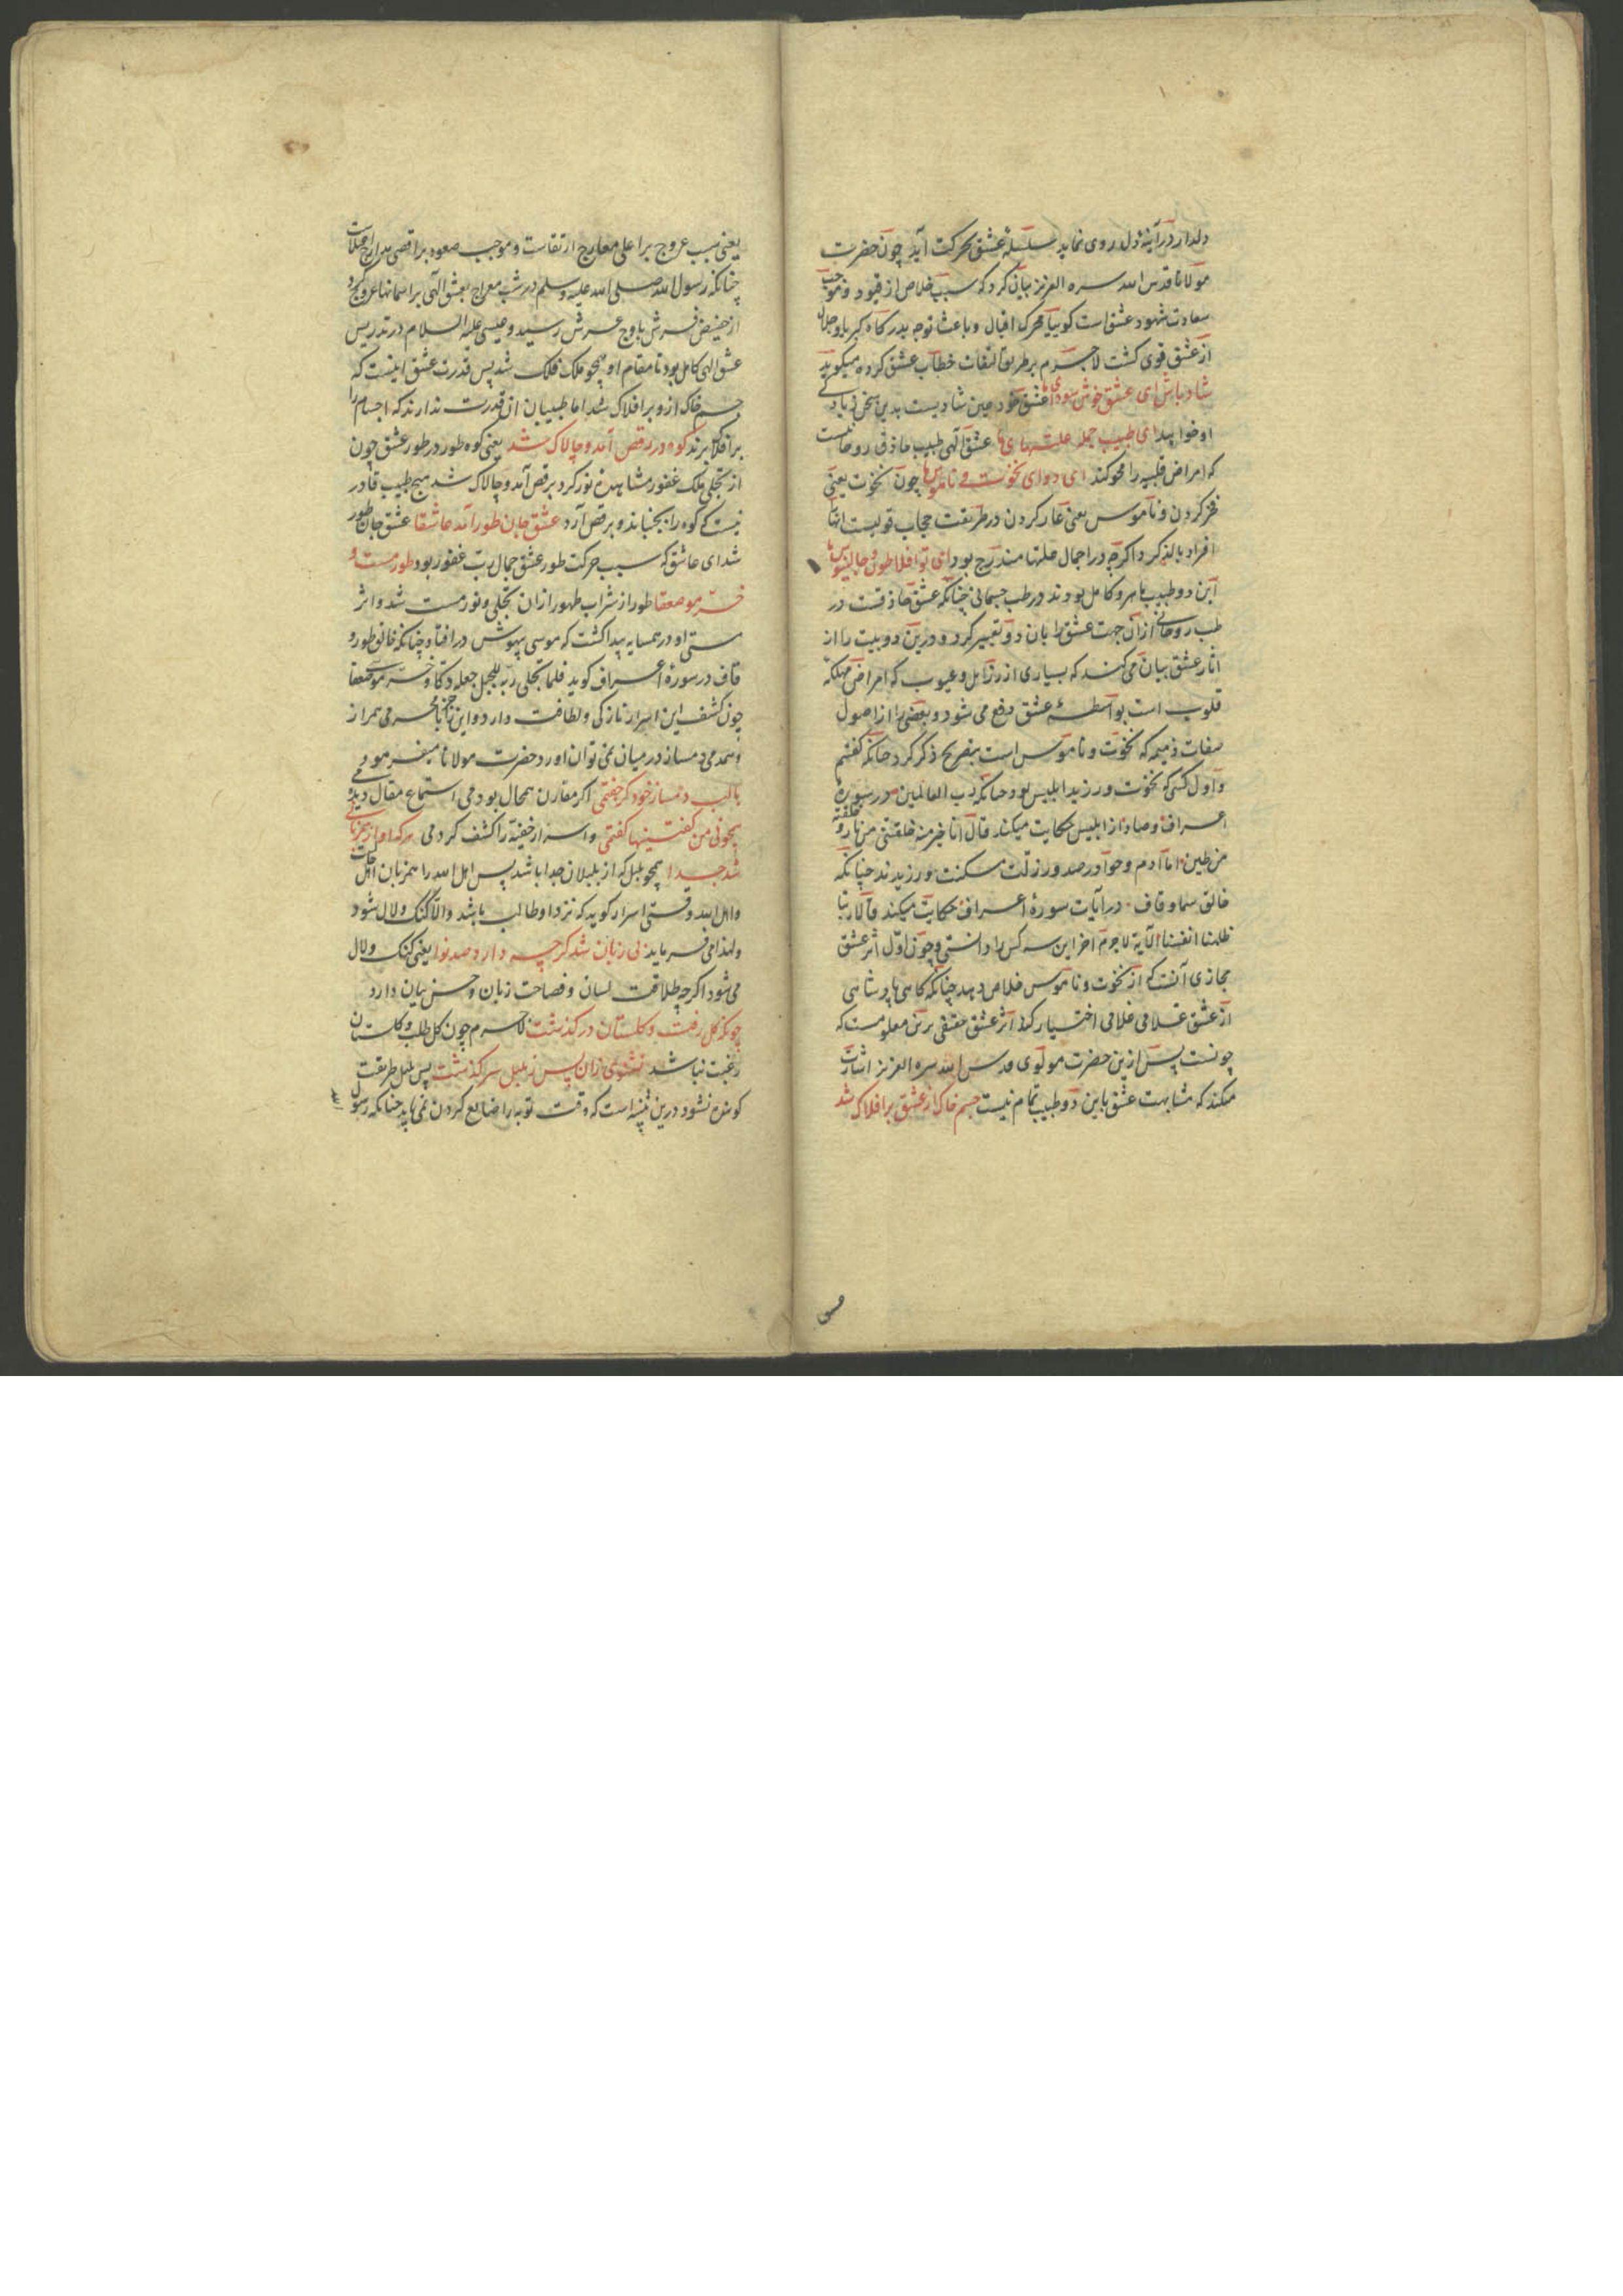 دلدار در آینهٔ دل روی نماید سلسلهٔ عشق بحرکت آید چون حضرت
مولانا قدس الله سره العزیز بیان کرد که سبب خلاص از قیود و موجب
سعادت شهود عشق است کوییا محرک اقبال و باعث توجه بدرکاه کبریا و جلال
از عشق قوی کشت لاجرم بر طریق التفات خطاب عشق کرده میکوید
شاد باش ای عشق خوش سودای ما عشق خود عین شادیست بدین سخن زیاد کے
او خواهد ای طبیب جمله علتهای ما عشق الهی طبیب حاذق روحانیست
که امراض قلبیه را محو کند ای دوای نخوت و ناموس ما چون نخوت یعنی
فخر کردن و ناموس یعنی عار کردن در طریقت حجاب قویست انها
افراد بالذکر کرد اکرچه در اجمال علتها مندرج بود ای تو افلاطون و جالینوس ما
این دو طبیب ماهر و کامل بودند در طب جسمانی چنانکه عشق حاذقست در
طب روحانی از آن جهت عشق را بان دو تعبیر کرد و درین دو بیت را از
اثار عشق بیان می کند که بسیاری از رزایل و عیوب که امراض مهلکه
قلوب است بواسطهٔ عشق دفع می شود و بعضی را از اصول
صفات ذمیمه که نخوت و ناموس است بتصریح ذکر کرد چنانکه کفتم
و اول کسی که نخوت ورزید ابلیس بود چنانکه رب العالمین در سورهٔ
اعراف و صاد از ابلیس حکایت میکند قال انا خیر منه خلقتنی من نار و خلقته
من طین اما آدم و حوا در صدور زلت مسکنت ورزیدند چنانکه
خالق سما و قاف در آیات سورهٔ اعراف حکایت میکند قالا ربنا
ظلمنا انفسنا الآیة لاجرم اخر این سه کس را دانستی و چون اول اثر عشق
مجازی آنست که از نخوت و ناموس خلاص دهد چنانکه کاهی پادشاهی
از عشق غلامی غلامی اختیار کند اثر عشق حقیقی برین معلومست که
چونست پس ازین حضرت مولوی قدس الله سره العزیز اشارت
میکند که مشابهت عشق باین دو طبیب تمام نیست جسم خاک از عشق بر افلاک شد
یعنی سبب عروج بر اعلی معارج ارتقاست و موجب صعود بر اقصی مدارج
چنانکه رسول الله صلی الله علیه وسلم در شب معراج بعشق الهی بر اسمانها عروج کرد
از حضیض فرش باوج عرش رسید و عیسی علیه السلام در تدریس
عشق الهی کامل بود تا مقام او همچو ملک فلک شد پس قدرت عشق اینست که
جسم خاک ازو بر افلاک شد اما طبیبان آن قدرت ندارند که اجسام را
بر افلاک برند کوه در رقص آمد و چالاک شد یعنی کوه طور در طور عشق چون
از تجلی ملک غفور مشاهدهٔ نور کرد برقص آمد و چالاک شد هیچ طبیب قادر
نیست که کوه را بجنباند و برقص آرد عشق جان طور آمد عاشقا عشق جان طور
شد ای عاشق که سبب حرکت طور عشق جمال رب غفور بود طور مست و
خر موسی صعقا طور از شراب طهور ازان تجلی و نور مست شد و اثر
مستی او در همسایه پیدا کشت که موسی بیهوش در افتاد چنانکه خالق طور و
قاف در سورهٔ اعراف کوید فلما تجلی ربه للجبل جعله دکا و خر موسی صعقا
چون کشف این اسرار نازکی و لطافت دارد و این راز با محرمی همراز
و همدمی دمساز در میان نمی توان اورد حضرت مولانا میفرمود
با لب دمساز خود کر جفتمی اکر مقارن همحال بودمی استماع مقال
همچو نی من کفتنیها کفتمی و اسرار خفیه را کشف کردمی هر که او از همزبانی
شد جدا همچو بلبل که از بلبلان جدا باشد پس اهل الله را همزبان
و اهل الله وقتی اسرار کوید که نزد او طالب باشد والا کنک و لال شود
ولهذا می فرماید بی زبان شد کرچه دارد صد نوا یعنی کنک و لال
می شود اکرچه طلاقت لسان و فصاحت زبان و حسن بیان دارد
چونکه کل رفت و کلستان درکذشت لاجرم چون کل طلب و کلستان
رغبت نباشد نشنوی زان پس ز بلبل سرکذشت پس بلبل طریقت
کوینده نشود درین تنبیه است که وقت توبه را ضایع کردن نمی باید چنانکه رسول